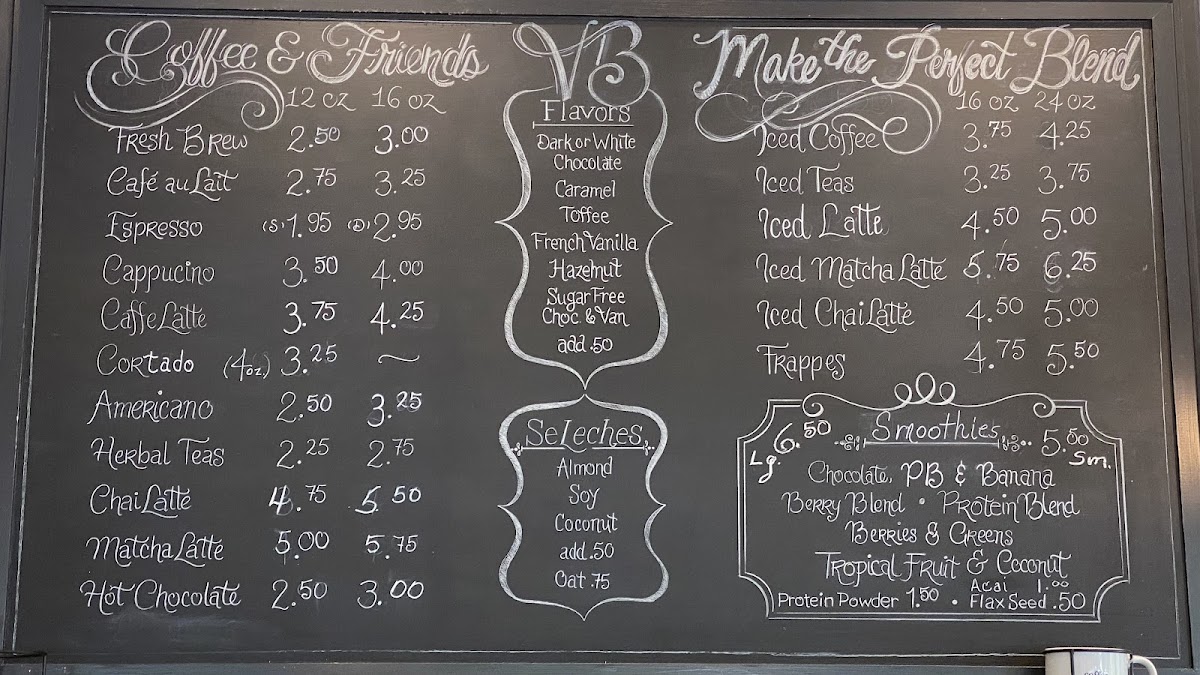 Coffee & Friends
12 oz 16 oz
Fresh Brew 2.50 3.00
Café au Lait 2.75 3.25
Espresso (S) 1.95 (D) 2.95
Cappucino 3.50 4.00
Caffe Latte 3.75 4.25
Cortado (4oz.) 3.25 ~
Americano 2.50 3.25
Herbal Teas 2.25 2.75
Chai Latte 4.75 5.50
Matcha Latte 5.00 5.75
Hot Chocolate 2.50 3.00
VB
Flavors
Dark or White
Chocolate
Caramel
Toffee
French Vanilla
Hazelnut
Sugar Free
Choc & Van
add .50
SeLeches
Almond
Soy
Coconut
add .50
Oat .75
Make the Perfect Blend
16 oz 24 oz
Iced Coffee 3.75 4.25
Iced Teas 3.25 3.75
Iced Latte 4.50 5.00
Iced Matcha Latte 5.75 6.25
Iced Chai Latte 4.50 5.00
Frappes 4.75 5.50
6.50 Smoothies 5.50
Lg. Sm.
Chocolate, PB & Banana
Berry Blend • Protein Blend
Berries & Greens
Tropical Fruit & Coconut
Acai 1.00
Protein Powder 1.50 • Flax Seed .50